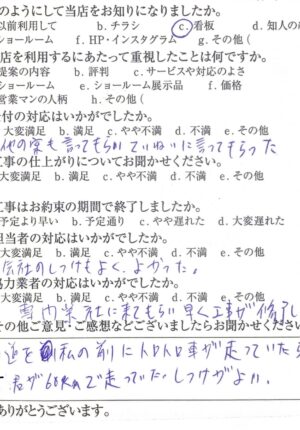 のようにして当店をお知りになりましたか。
以前利用して b.チラシ c.看板 d.知人の
ショールーム f.HP・インスタグラム g.その他(
店を利用するにあたって重視したことは何ですか。
提案の内容 b.評判 c.サービスや対応のよさ
ショールーム e.ショールーム展示品 f.価格
営業マンの人柄 h.その他(
付の対応はいかがでしたか。
大変満足 b.満足 c.やや不満 d.不満 e.その他
他の案も言ってもらい ていねいに言ってもらった
工事の仕上がりについてお聞かせください。
大変満足 b.満足 c.やや不満 d.不満 e.その他
工事はお約束の期間で終了しましたか。
予定より早い b.予定通り c.やや遅れた d.大変遅れた
担当者の対応はいかがでしたか。
大変満足 b.満足 c.やや不満 d.不満 e.その他
会社のしつけもよく、よかった。
協力業者の対応はいかがでしたか。
大変満足 b.満足 c.やや不満 d.不満 e.その他
に来てもらい早く工事が
その他ご意見・ご感想などございましたらお聞かせください
道を 私の前にトロトロ車が走っていたら
君が60kmで走っていた。しつけがよい。
ありがとうございます。